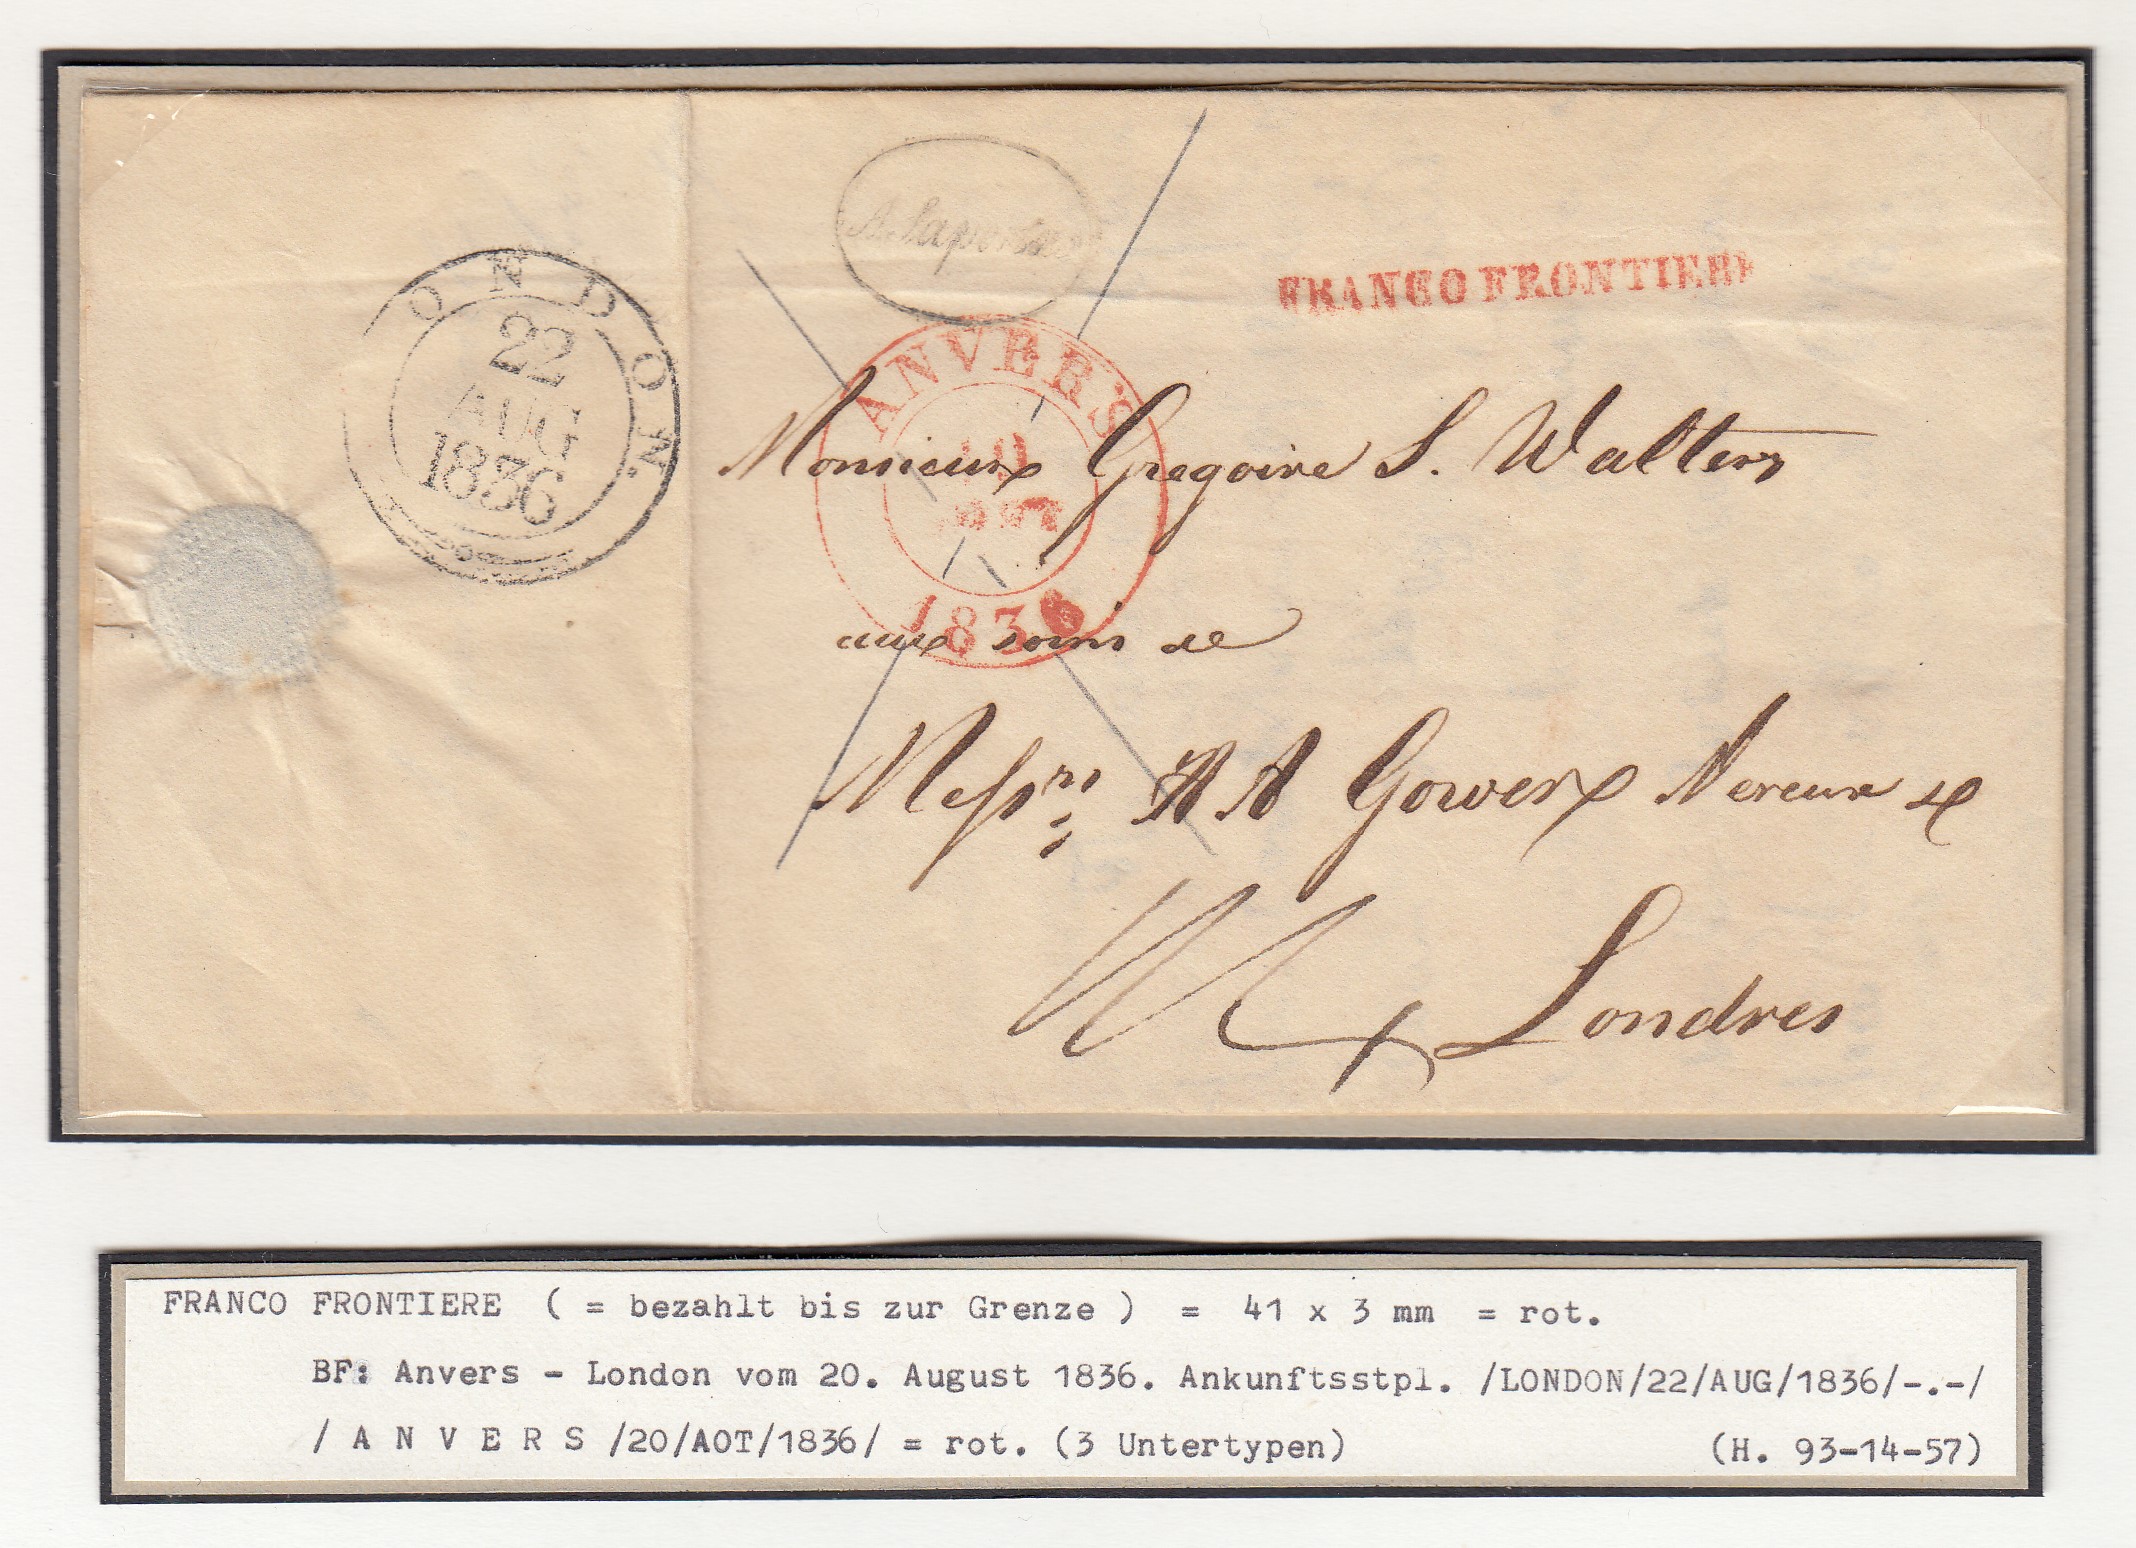 ONDON
22
AUG
1836
FRANCO FRONTIERE
ANVERS
1836
Monsieur Gregoire S. Walters
aux soins de
Messrs. A A Gower Neveux &
Londres
FRANCO FRONTIERE ( = bezahlt bis zur Grenze ) = 41 x 3 mm = rot.
BF: Anvers - London vom 20. August 1836. Ankunftsstpl. /LONDON/22/AUG/1836/-.-/
/ A N V E R S /20/AOT/1836/ = rot. (3 Untertypen) (H. 93-14-57)